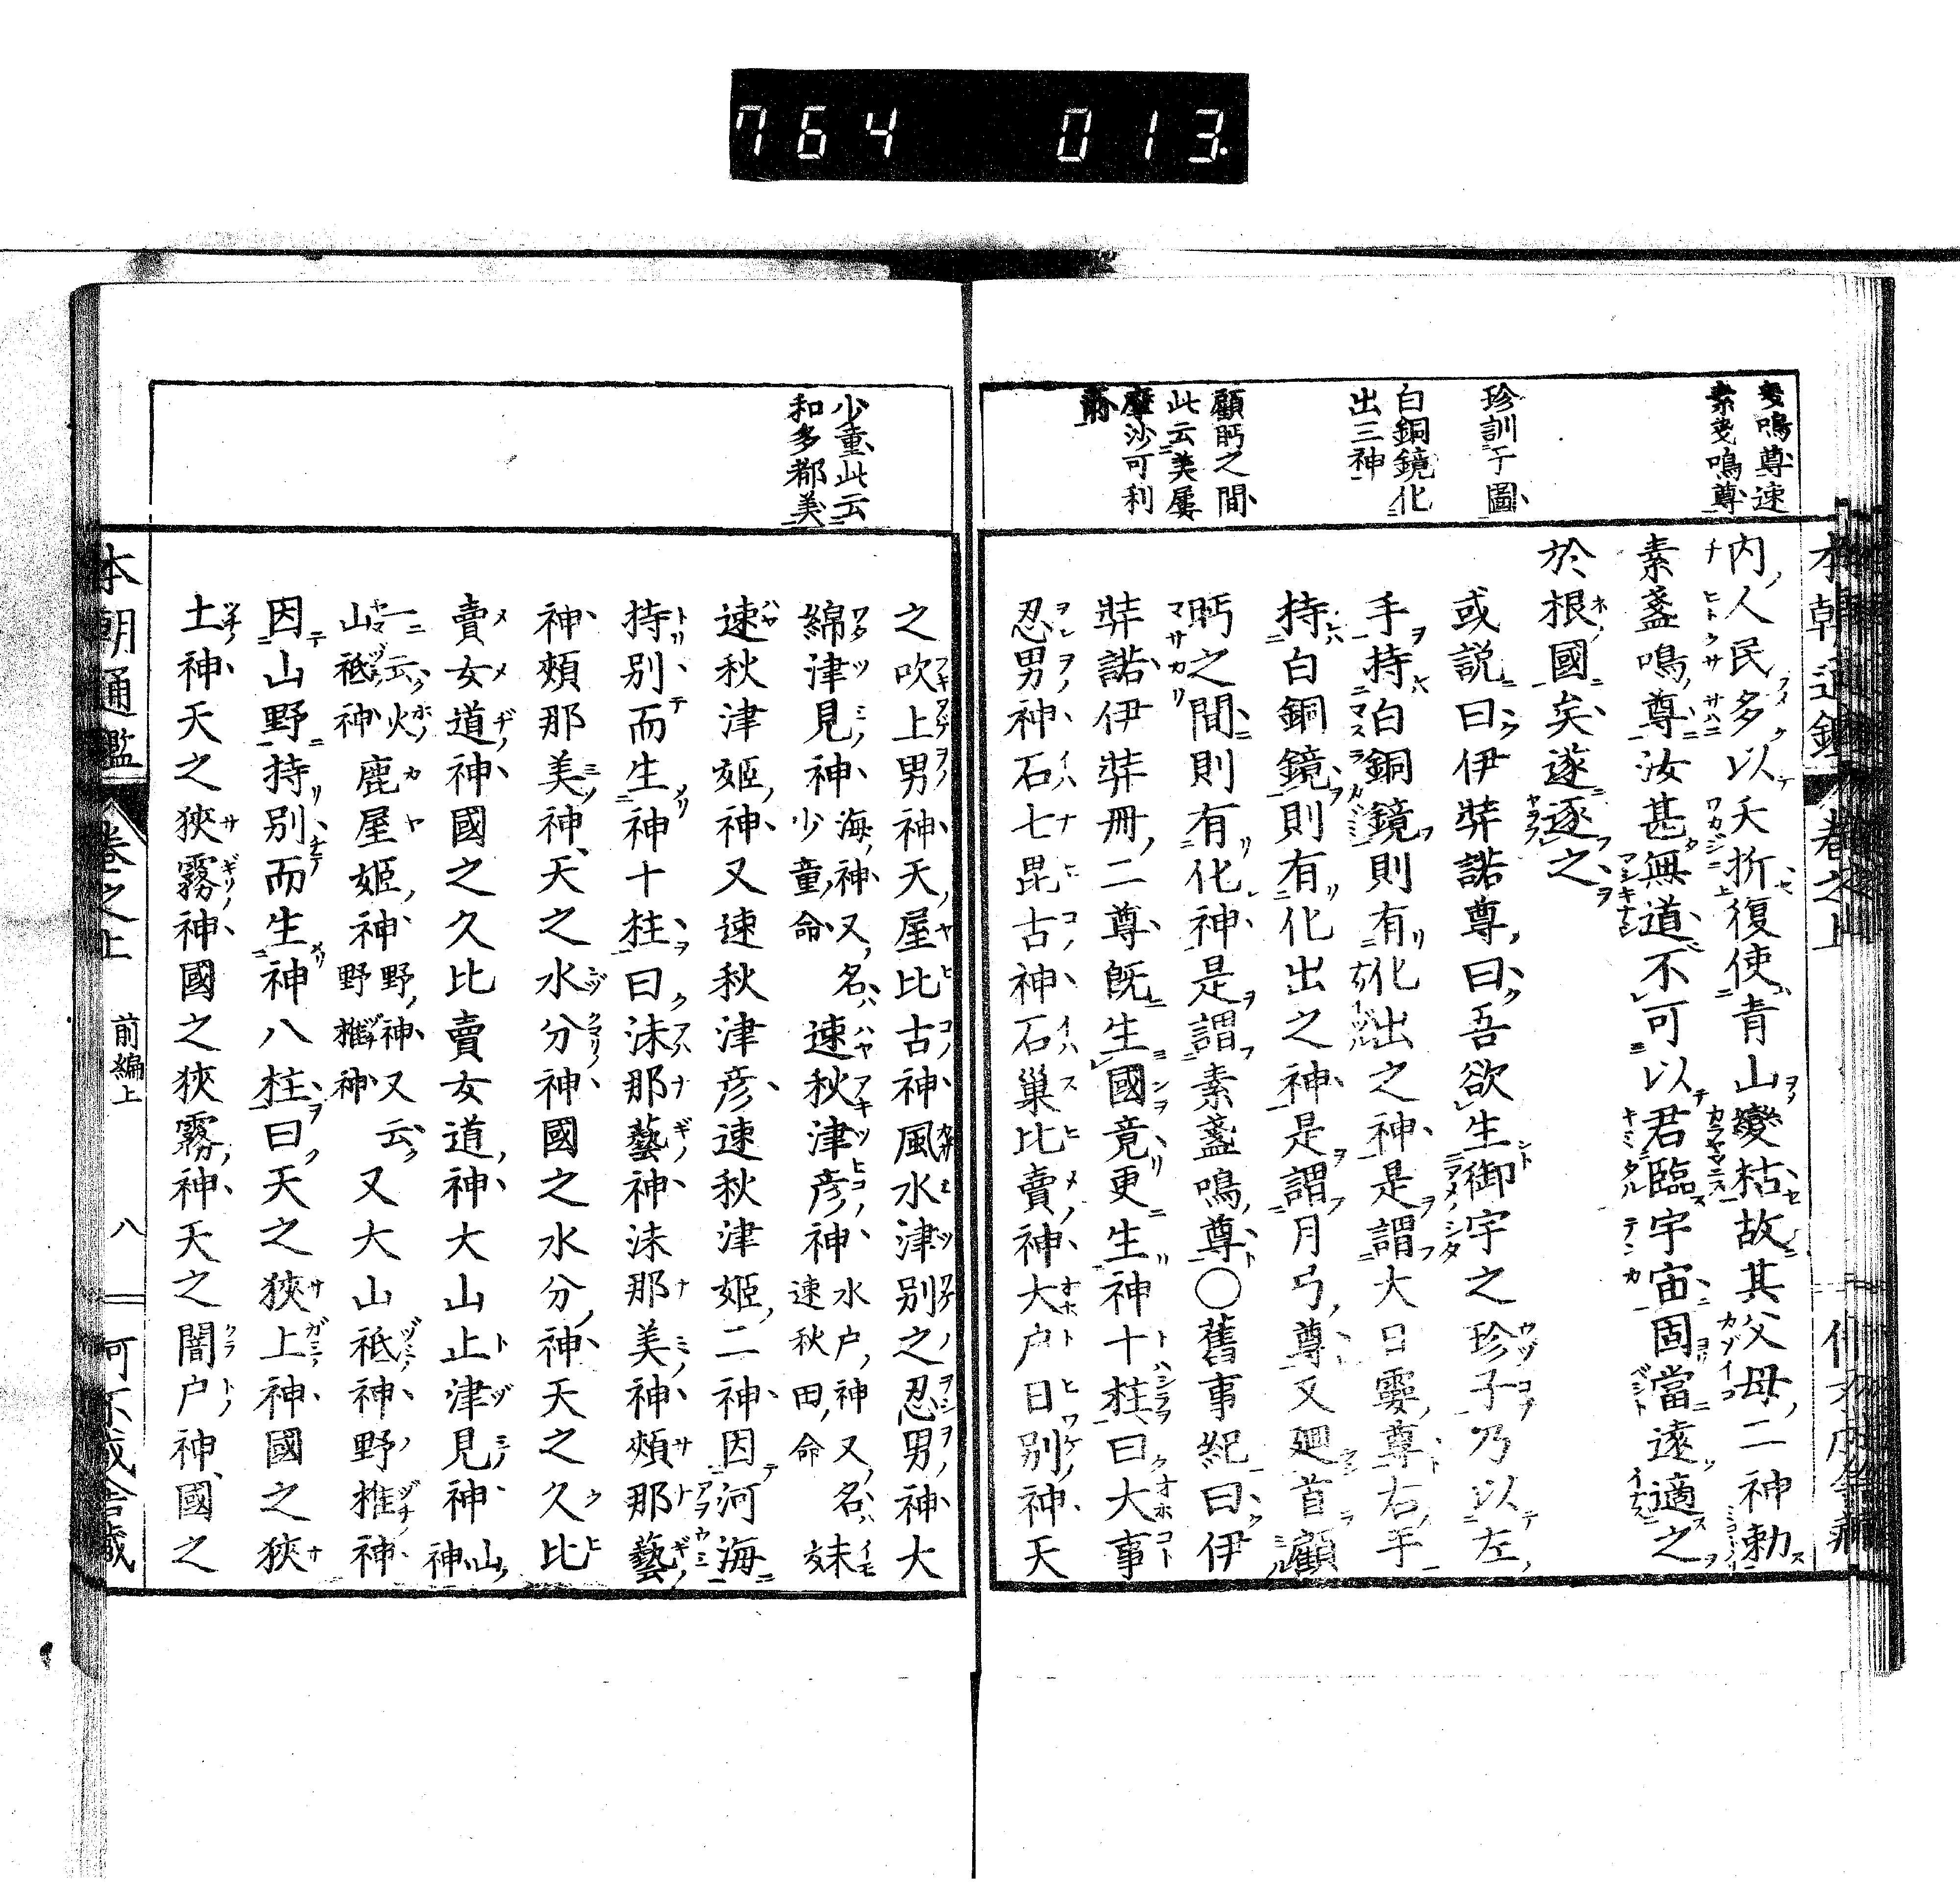 764 013.
戔鳴尊速
素戔鳴尊
珍訓于圖
白銅鏡化
出三神
顧眄之間
此云美屢
摩沙可利
爾
内人民多以夭折復使青山變枯故其父母二神勅
素盞鳴尊汝甚無道不可以君臨宇宙固當遠適之
於根國矣遂逐之
或説曰伊弉諾尊曰吾欲生御宇之珍子乃以左
手持白銅鏡則有化出之神是謂大日孁尊右手
持白銅鏡則有化出之神是謂月弓尊又廻首顧
眄之間則有化神是謂素盞鳴尊○舊事紀曰伊
弉諾伊弉冊二尊既生國竟更生神十柱曰大事
忍男神石七毘古神石巢比賣神大户日別神天
少童此云
和多都美
之吹上男神天屋比古神風水津別之忍男神大
綿津見神海神又名少童命速秋津彦神水户神又名速秋田命妹
速秋津姬神又速秋津彦速秋津姬二神因河海
持別而生神十柱曰沫那藝神沫那美神頰那藝
神頰那美神天之水分神國之水分神天之久比
賣女道神國之久比賣女道神大山止津見神山神
一云火山祇神鹿屋姬神野神又云野椎神又云大山祇神野椎神
因山野持別而生神八柱曰天之狹上神國之狹
土神天之狹霧神國之狹霧神天之闇户神國之
本朝通鑑
卷之上
前編上
八